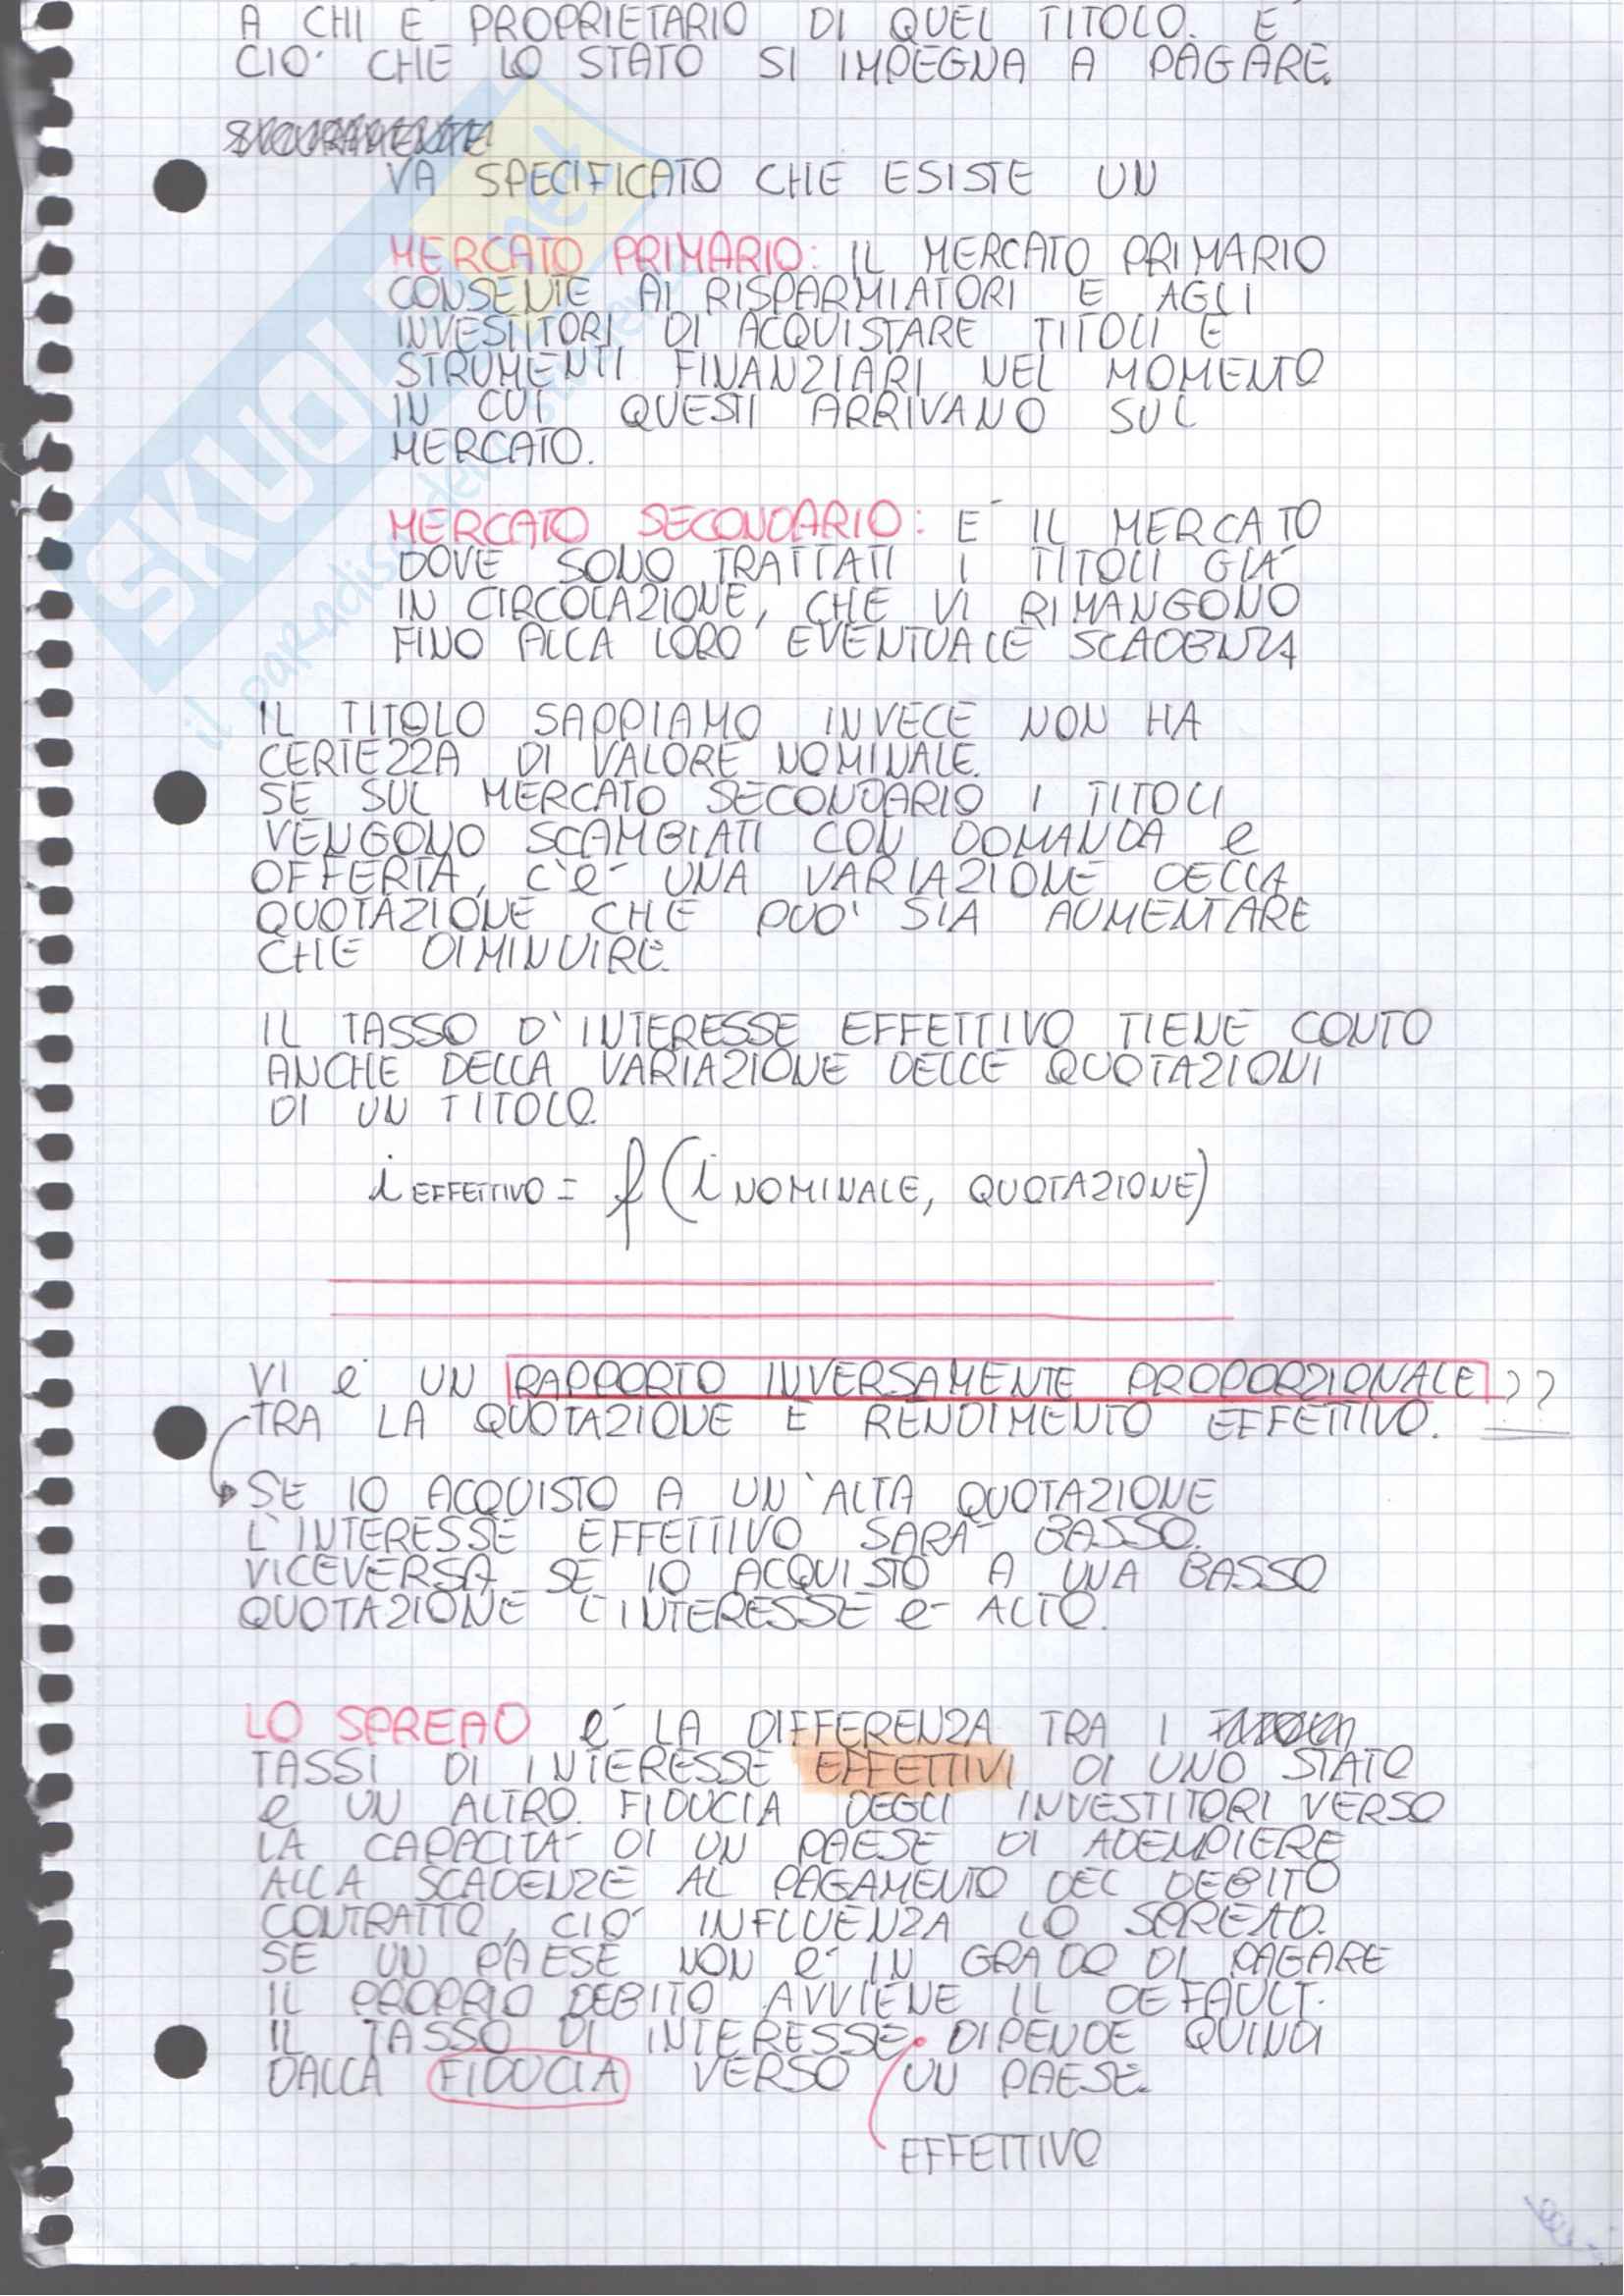 A CHI E PROPRIETARIO DI QUEL TITOLO. E'
CIO' CHE LO STATO SI IMPEGNA A PAGARE.
VA SPECIFICATO CHE ESISTE UN
MERCATO PRIMARIO: IL MERCATO PRIMARIO
CONSENTE AI RISPARMIATORI E AGLI
INVESTITORI DI ACQUISTARE TITOLI E
STRUMENTI FINANZIARI NEL MOMENTO
IN CUI QUESTI ARRIVANO SUL
MERCATO.
MERCATO SECONDARIO: E' IL MERCATO
DOVE SONO TRATTATI I TITOLI GIA'
IN CIRCOLAZIONE, CHE VI RIMANGONO
FINO ALLA LORO EVENTUALE SCADENZA
IL TITOLO SAPPIAMO INVECE NON HA
CERTEZZA DI VALORE NOMINALE.
SE SUL MERCATO SECONDARIO I TITOLI
VENGONO SCAMBIATI CON DOMANDA e
OFFERTA, C'e' UNA VARIAZIONE DELLA
QUOTAZIONE CHE PUO' SIA AUMENTARE
CHE DIMINUIRE.
IL TASSO D'INTERESSE EFFETTIVO TIENE CONTO
ANCHE DELLA VARIAZIONE DELLE QUOTAZIONI
DI UN TITOLO.
i EFFETTIVO = f (i NOMINALE, QUOTAZIONE)
VI e' UN RAPPORTO INVERSAMENTE PROPORZIONALE ??
TRA LA QUOTAZIONE E RENDIMENTO EFFETTIVO.
SE IO ACQUISTO A UN'ALTA QUOTAZIONE
L'INTERESSE EFFETTIVO SARA' BASSO.
VICEVERSA SE IO ACQUISTO A UNA BASSO
QUOTAZIONE L'INTERESSE e' ALTO.
LO SPREAD e' LA DIFFERENZA TRA I
TASSI DI INTERESSE EFFETTIVI DI UNO STATO
e UN ALTRO. FIDUCIA DEGLI INVESTITORI VERSO
LA CAPACITA' DI UN PAESE DI ADEMPIERE
ALLA SCADENZE AL PAGAMENTO DEL DEBITO
CONTRATTO, CIO' INFLUENZA LO SPREAD.
SE UN PAESE NON e' IN GRADO DI PAGARE
IL PROPRIO DEBITO AVVIENE IL DEFAULT.
IL TASSO DI INTERESSE DIPENDE QUINDI
DALLA FIDUCIA VERSO UN PAESE.
EFFETTIVO
SKUOLA.net